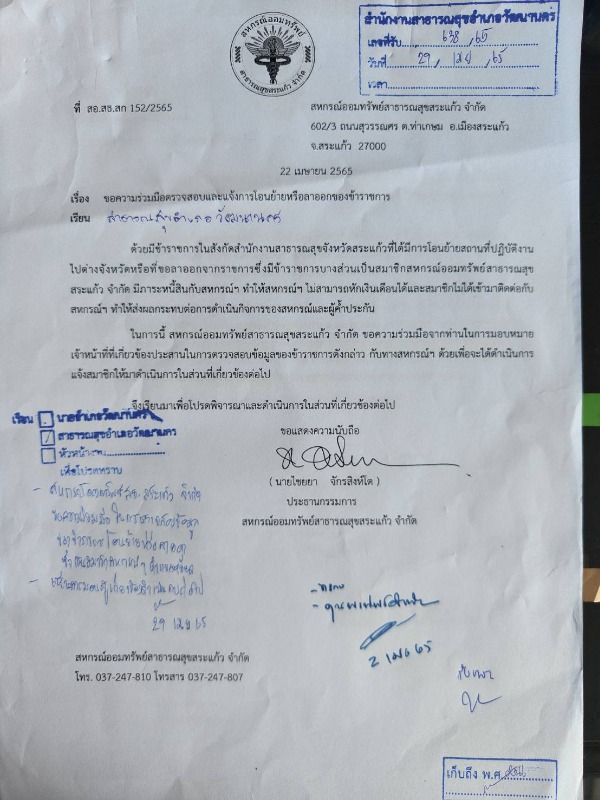 สหกรณ์ออมทรัพย์
สาธารณสุขสระแก้ว จำกัด
สำนักงานสาธารณสุขอำเภอวัฒนานคร
เลขที่รับ 638/65
วันที่ 29 เมย 65
เวลา
ที่ สอ.สธ.สก 152/2565
สหกรณ์ออมทรัพย์สาธารณสุขสระแก้ว จำกัด
602/3 ถนนสุวรรณศร ต.ท่าเกษม อ.เมืองสระแก้ว
จ.สระแก้ว 27000
22 เมษายน 2565
เรื่อง ขอความร่วมมือตรวจสอบและแจ้งการโอนย้ายหรือลาออกของข้าราชการ
เรียน สาธารณสุขอำเภอวัฒนานคร
ด้วยมีข้าราชการในสังกัดสำนักงานสาธารณสุขจังหวัดสระแก้วที่ได้มีการโอนย้ายสถานที่ปฏิบัติงาน
ไปต่างจังหวัดหรือที่ขอลาออกจากราชการซึ่งมีข้าราชการบางส่วนเป็นสมาชิกสหกรณ์ออมทรัพย์สาธารณสุข
สระแก้ว จำกัด มีภาระหนี้สินกับสหกรณ์ฯ ทำให้สหกรณ์ฯ ไม่สามารถหักเงินเดือนได้และสมาชิกไม่ได้เข้ามาติดต่อกับ
สหกรณ์ฯ ทำให้ส่งผลกระทบต่อการดำเนินกิจการของสหกรณ์และผู้ค้ำประกัน
ในการนี้ สหกรณ์ออมทรัพย์สาธารณสุขสระแก้ว จำกัด ขอความร่วมมือจากท่านในการมอบหมาย
เจ้าหน้าที่ที่เกี่ยวข้องประสานในการตรวจสอบข้อมูลของข้าราชการดังกล่าว กับทางสหกรณ์ฯ ด้วยเพื่อจะได้ดำเนินการ
แจ้งสมาชิกให้มาดำเนินการในส่วนที่เกี่ยวข้องต่อไป
จึงเรียนมาเพื่อโปรดพิจารณาและดำเนินการในส่วนที่เกี่ยวข้องต่อไป
เรียน นายอำเภอวัฒนานคร
สาธารณสุขอำเภอวัฒนานคร
หัวหน้างาน
เพื่อโปรดทราบ
ขอแสดงความนับถือ
( นายไชยยา จักรสิงห์โต )
ประธานกรรมการ
สหกรณ์ออมทรัพย์สาธารณสุขสระแก้ว จำกัด
29 เมย 65
- ทราบ
สหกรณ์ออมทรัพย์สาธารณสุขสระแก้ว จำกัด
โทร. 037-247-810 โทรสาร 037-247-807
เก็บถึง พ.ศ.